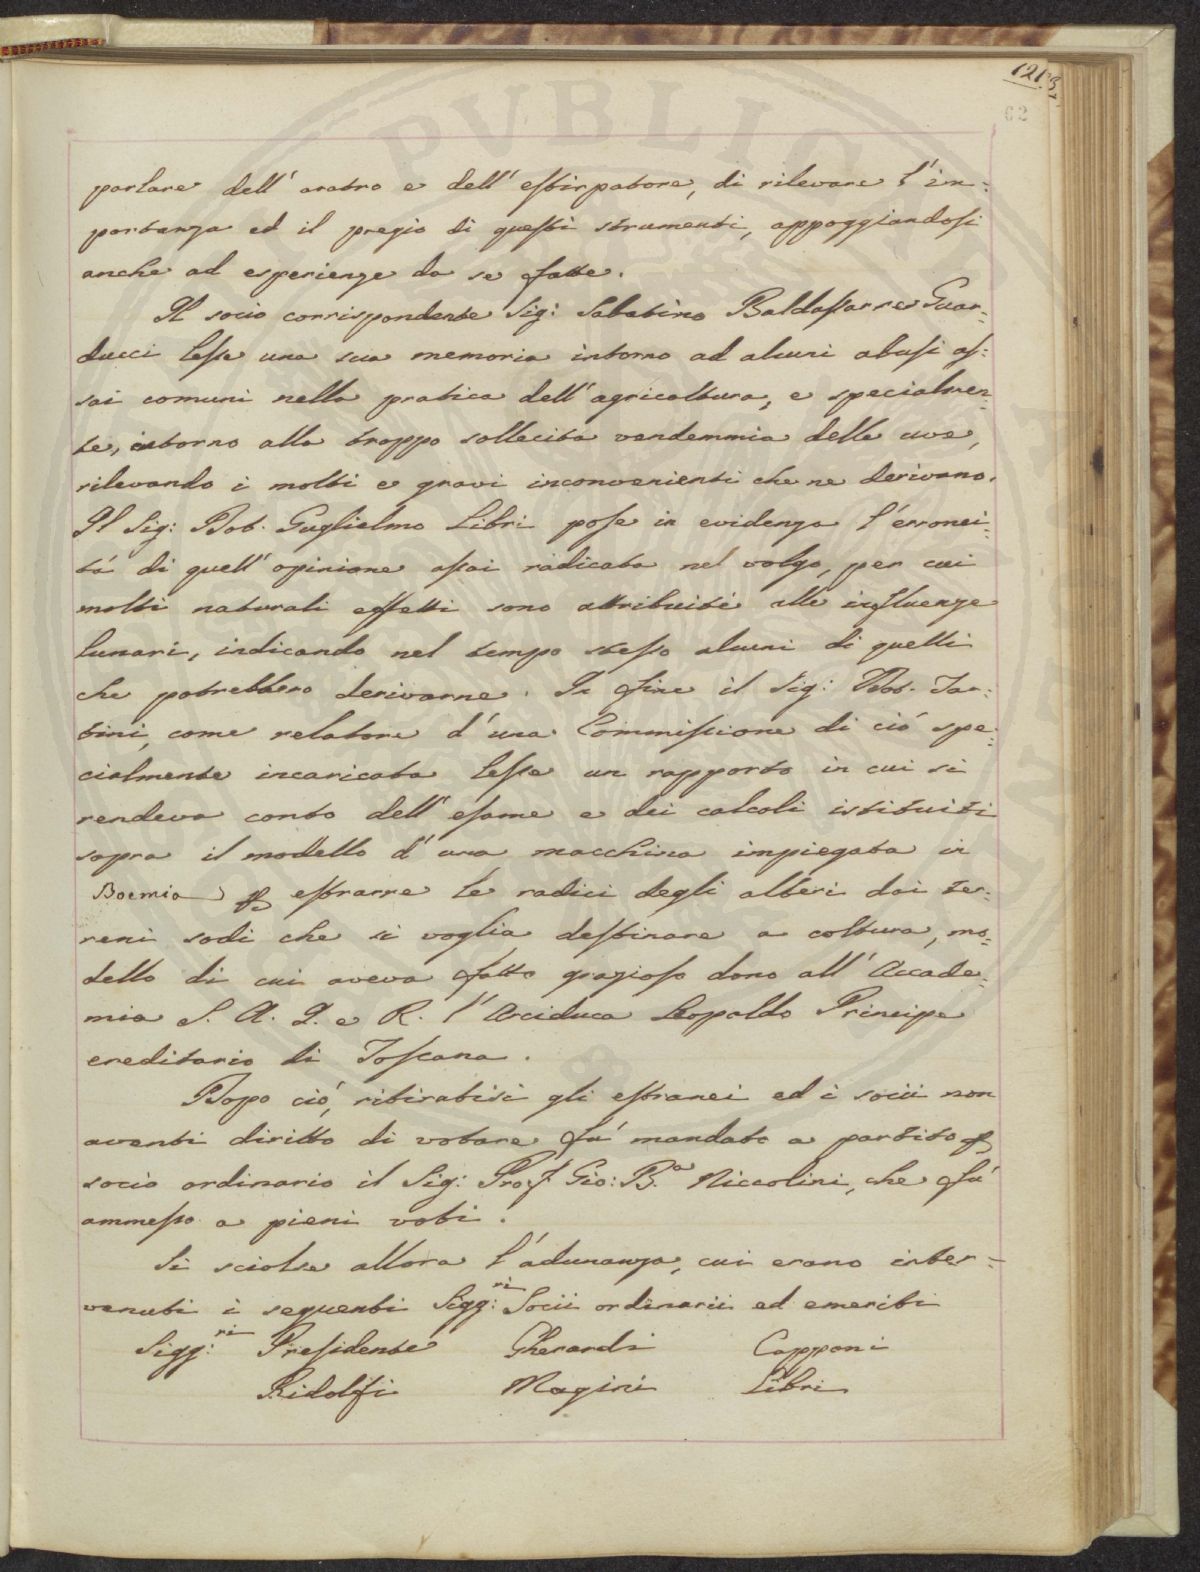 121.3
62
parlare dell' aratro e dell' estirpatore, di rilevare l'im=
portanza ed il pregio di questi strumenti, appoggiandosi
anche ad esperienze da se fatte.
Il socio corrispondente Sig: Sabatino Baldassarre Guar=
ducci lesse una sua memoria intorno ad alcuni abusi as=
sai comuni nella pratica dell' agricoltura, e specialmen=
te, intorno alla troppo sollecita vendemmia delle uve,
rilevando i molti e gravi inconvenienti che ne derivano.
Il Sig: Dot. Guglielmo Libri pose in evidenza l'erronei=
tá di quell' opinione assai radicata nel volgo, per cui
molti naturali effetti sono attribuiti alle influenze
lunari, indicando nel tempo stesso alcuni di quelli
che potrebbero derivarne. In fine il Sig: Dot. Tar=
tini, come relatore d'una Commissione di ció spe=
cialmente incaricata lesse un rapporto in cui si
rendeva conto dell' esame e dei calcoli istituiti
sopra il modello d' una macchina impiegata in
Boemia p estrarre le radici degli alberi dai ter=
reni sodi che si voglia destinare a coltura, mo=
dello di cui aveva fatto grazioso dono all' Accade=
mia S. A. I. e R. l' Arciduca Leopoldo Principe
ereditario di Toscana.
Dopo ció, ritiratisi gli estranei ed i socii non
aventi diritto di votare fú mandato a partito p
socio ordinario il Sig: Prof. Gio: B.a Niccolini, che fú
ammesso a pieni voti.
Si sciolse allora l'adunanza, cui erano inter=
venuti i seguenti Sigg:ri Socii ordinarii ed emeriti
Sigg:ri Presidente Gherardi Capponi
Ridolfi Magini Libri